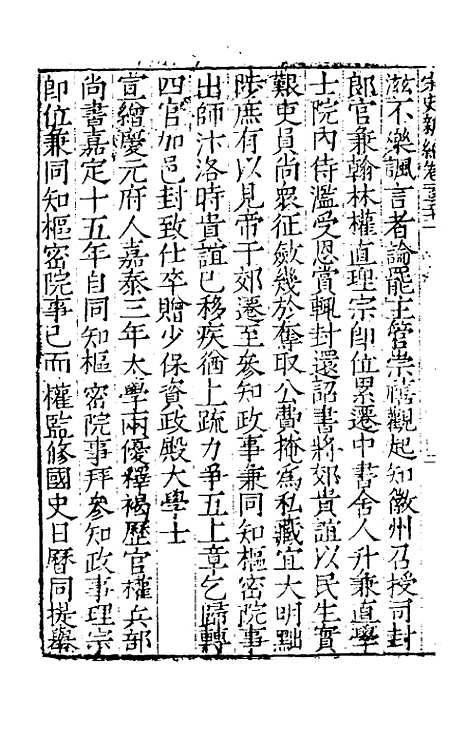 宋史新編卷一百五十一
滋不樂諷言者論罷主管崇禧觀起知徽州召授司封
郎官兼翰林權直理宗卽位累遷中書舍人升兼直學
士院內侍濫受恩賞輒封還詔書將郊貴誼以民生實
艱吏員尚衆征斂幾於奪取公費掩爲私藏宜大明黜
陟庶有以見帝于郊遷至參知政事兼同知樞密院事
出師汴洛時貴誼已移疾猶上疏力爭五上章乞歸轉
四官加邑封致仕卒贈少保資政殿大學士
宣繒慶元府人嘉泰三年太學兩優釋褐歷官權兵部
尚書嘉定十五年自同知樞密院事拜參知政事理宗
卽位兼同知樞密院事已而權監修國史日曆同提舉